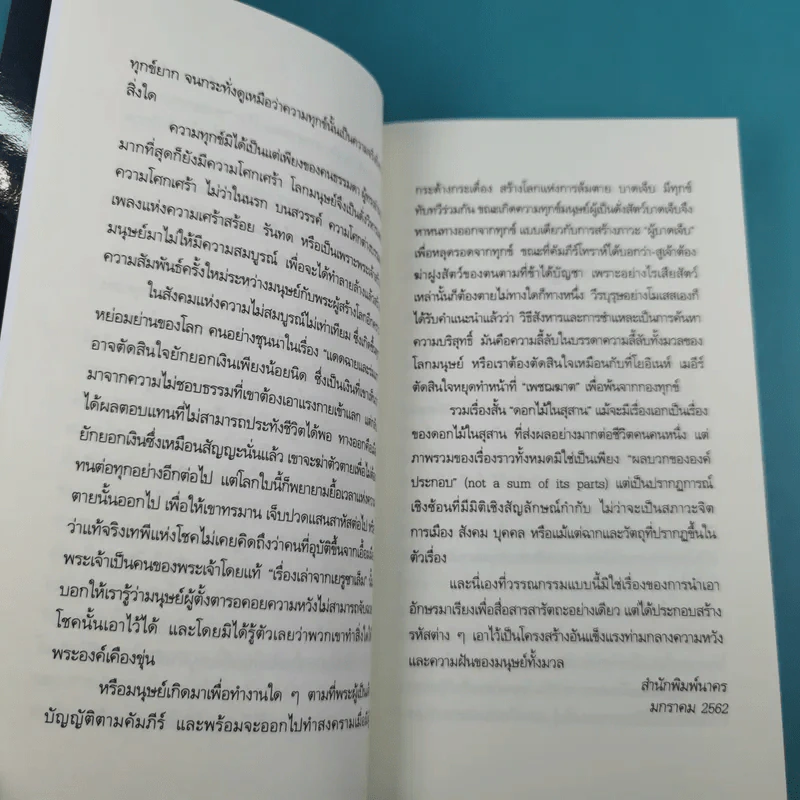 ทุกข์ยาก จนกระทั่งดูเหมือว่าความทุกข์นั้นเป็นความ
สิ่งใด
ความทุกข์มิได้เป็นแต่เพียงของคนธรรมดา
มากที่สุดก็ยังมีความโศกเศร้า โลกมนุษย์จึงเป็น
กับความโศกเศร้า ไม่ว่าในนรก บนสวรรค์ ความโศก
เพลงแห่งความเศร้าสร้อย รันทด หรือเป็นเพราะพระเจ้า
มนุษย์มาไม่ให้มีความสมบูรณ์ เพื่อจะได้ทำลายล้างแล้ว
ความสัมพันธ์ครั้งใหม่ระหว่างมนุษย์กับพระผู้สร้างโลก
ในสังคมแห่งความไม่สมบูรณ์ไม่เท่าเทียม ซึ่ง
หย่อมย่านของโลก คนอย่างชุนนาในเรื่อง "แดดฉาย
อาจตัดสินใจยักยอกเงินเพียงน้อยนิด ซึ่งเป็นเงินที่เขา
มาจากความไม่ชอบธรรมที่เขาต้องเอาแรงกายเข้าแลก แต่
ได้ผลตอบแทนที่ไม่สามารถประทังชีวิตได้พอ ทางออกคือ
ยักยอกเงินซึ่งเหมือนสัญญะนั่นแล้ว เขาจะฆ่าตัวตายเพื่อไม่
ทนต่อทุกอย่างอีกต่อไป แต่โลกใบนี้ก็พยายามยื้อเวลาแห่งความ
ตายนั้นออกไป เพื่อให้เขาทรมาน เจ็บปวดแสนสาหัสต่อไป
ว่าแท้จริงเทพีแห่งโชคไม่เคยคิดถึงว่าคนที่อุบัติขึ้นจากเอื้อมมือ
พระเจ้าเป็นคนของพระเจ้าโดยแท้ "เรื่องเล่าจากเยรูซาเล็ม"
บอกให้เรารู้ว่ามนุษย์ผู้ตั้งตารอคอยความหวังไม่สามารถจับ
โชคนั้นเอาไว้ได้ และโดยมิได้รู้ตัวเลยว่าพวกเขาทำสิ่งใด
พระองค์เคืองขุ่น
หรือมนุษย์เกิดมาเพื่อทำงานใด ๆ ตามที่พระผู้เป็น
บัญญัติตามคัมภีร์ และพร้อมจะออกไปทำสงครามเมื่อ
กระด้างกระเดื่อง สร้างโลกแห่งการล้มตาย บาดเจ็บ มีทุกข์
ทับทวีร่วมกัน ขณะเกิดความทุกข์มนุษย์ผู้เป็นดั่งสัตว์บาดเจ็บจึง
หาหนทางออกจากทุกข์ แบบเดียวกับการสร้างภาวะ "ผู้บาดเจ็บ"
เพื่อหลุดรอดจากทุกข์ ขณะที่คัมภีร์โทราห์ได้บอกว่า-สูเจ้าต้อง
ฆ่าฝูงสัตว์ของตนตามที่ข้าได้บัญชา เพราะอย่างไรเสียสัตว์
เหล่านั้นก็ต้องตายไม่ทางใดก็ทางหนึ่ง วีรบุรุษอย่างโมเสสเองก็
ได้รับคำแนะนำแล้วว่า วิธีสังหารและการชำแหละเป็นการค้นหา
ความบริสุทธิ์ มันคือความลี้ลับในบรรดาความลี้ลับทั้งมวลของ
โลกมนุษย์ หรือเราต้องตัดสินใจเหมือนกับที่โยอีเนห์ เมอีร์
ตัดสินใจหยุดทำหน้าที่ "เพชฌฆาต" เพื่อพ้นจากกองทุกข์
รวมเรื่องสั้น "ดอกไม้ในสุสาน" แม้จะมีเรื่องเอกเป็นเรื่อง
ของดอกไม้ในสุสาน ที่ส่งผลอย่างมากต่อชีวิตคนคนหนึ่ง แต่
ภาพรวมของเรื่องราวทั้งหมดมิใช่เป็นเพียง "ผลบวกขององค์
ประกอบ" (not a sum of its parts) แต่เป็นปรากฏการณ์
เชิงซ้อนที่มีมิติเชิงสัญลักษณ์กำกับ ไม่ว่าจะเป็นสภาวะจิต
การเมือง สังคม บุคคล หรือแม้แต่ฉากและวัตถุที่ปรากฏขึ้นใน
ตัวเรื่อง
และนี่เองที่วรรณกรรมแบบนี้มิใช่เรื่องของการนำเอา
อักษรมาเรียงเพื่อสื่อสารสารัตถะอย่างเดียว แต่ได้ประกอบสร้าง
รหัสต่าง ๆ เอาไว้เป็นโครงสร้างอันแข็งแรงท่ามกลางความหวัง
และความฝันของมนุษย์ทั้งมวล
สำนักพิมพ์นาคร
มกราคม 2562